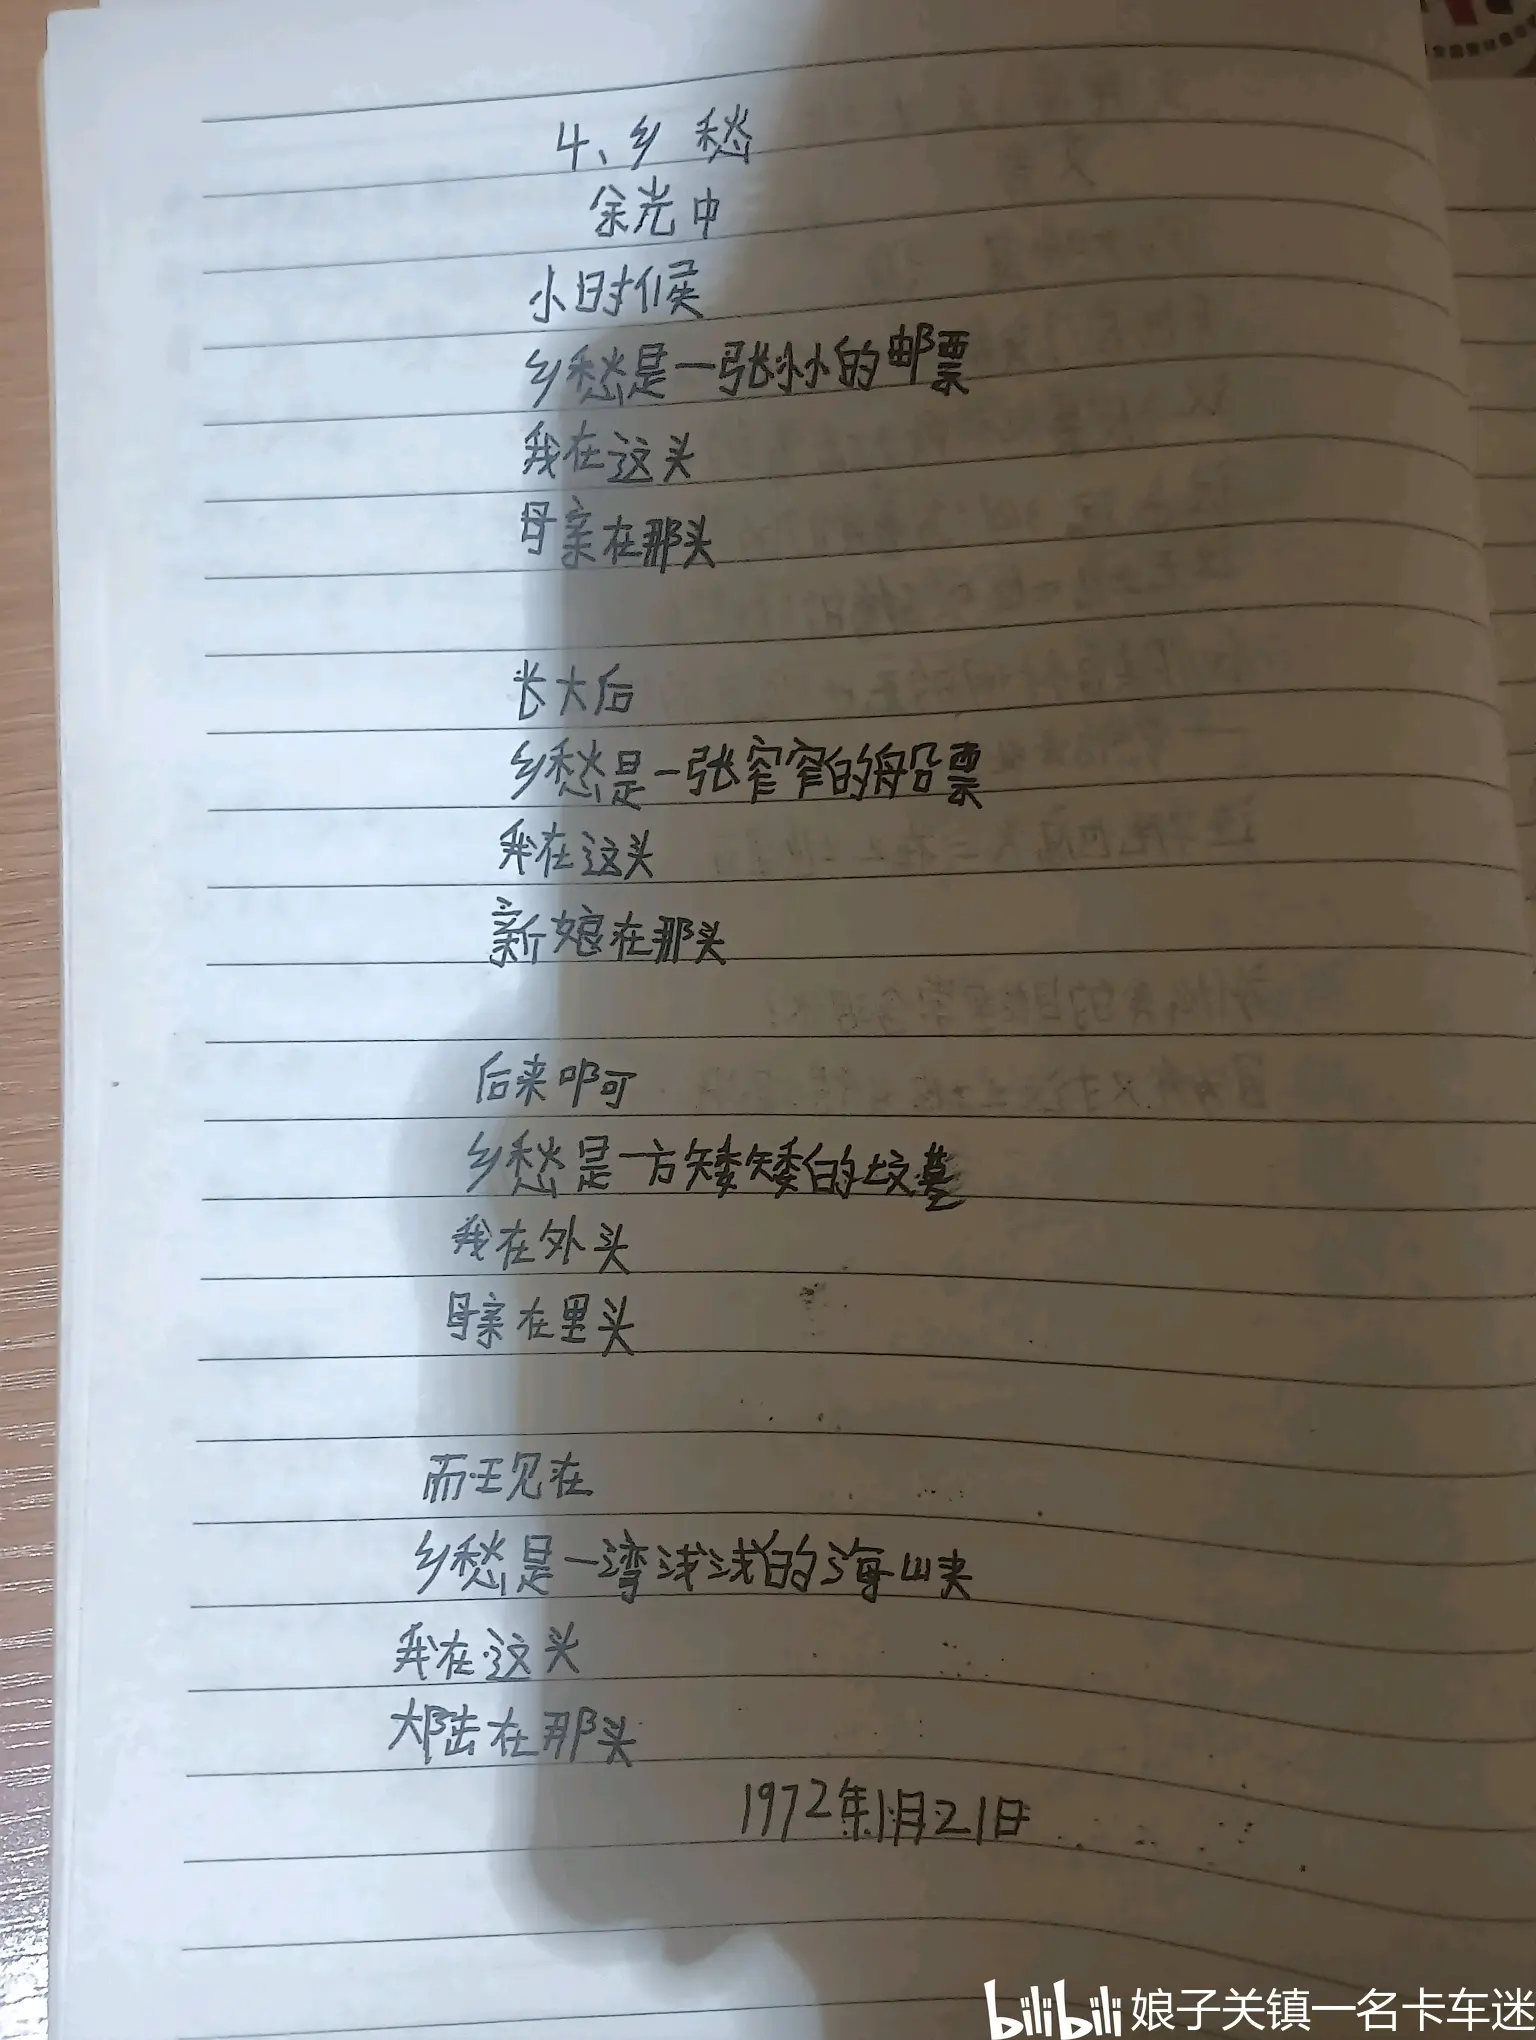 4、乡愁
余光中
小时候
乡愁是一张小小的邮票
我在这头
母亲在那头
长大后
乡愁是一张窄窄的船票
我在这头
新娘在那头
后来啊
乡愁是一方矮矮的坟墓
我在外头
母亲在里头
而现在
乡愁是一湾浅浅的海峡
我在这头
大陆在那头
1972年1月21日
bilibili 娘子关镇一名卡车迷